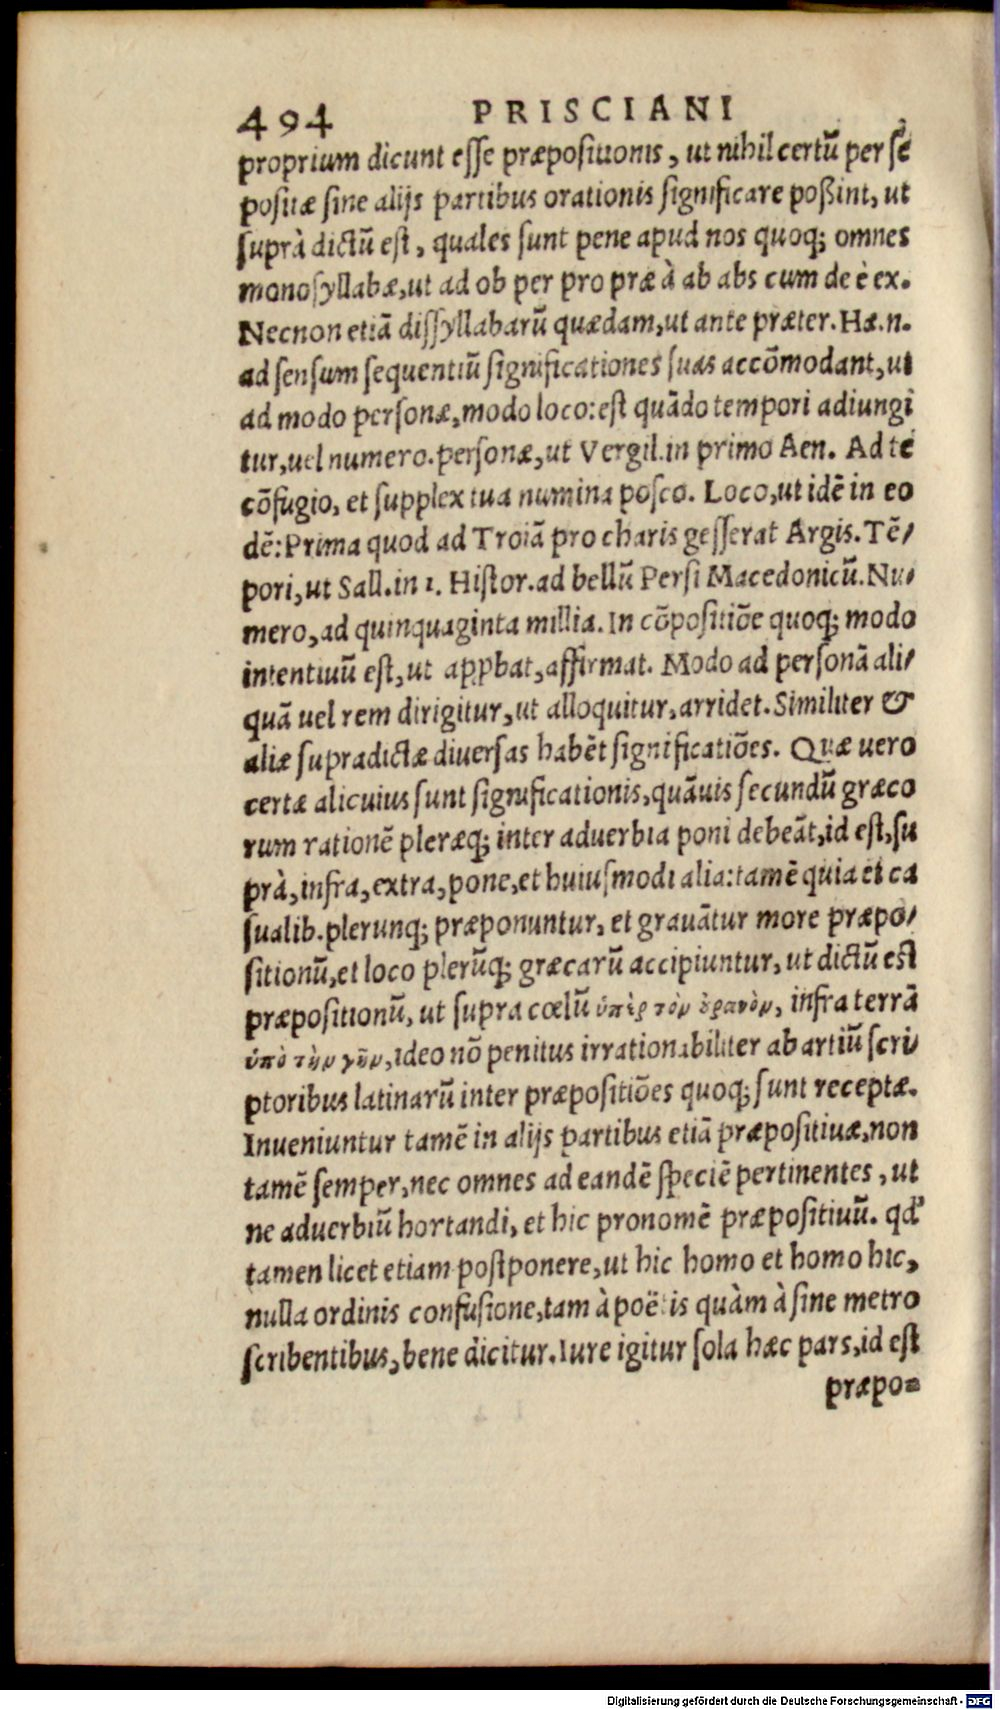 494 PRISCIANI
proprium dicunt esse præpositionis, ut nihil certū per se
positæ sine alijs partibus orationis significare poßint, ut
suprà dictū est, quales sunt pene apud nos quoq; omnes
monosyllabæ,ut ad ob per pro præ à ab abs cum de è ex.
Necnon etiā dissyllabarū quædam,ut ante præter.Hæ.n.
ad sensum sequentiū significationes suas accōmodant,ut
ad modo personæ,modo loco:est quādo tempori adiungi
tur,uel numero.personæ,ut Vergil.in primo Aen. Ad te
cōfugio, et supplex tua numina posco. Loco,ut idē in eo
dē:Prima quod ad Troiā pro charis gesserat Argis.Tē/
pori,ut Sall.in 1. Histor.ad bellū Persi Macedonicū.Nu/
mero,ad quinquaginta millia.In cōpositiōe quoq; modo
intentiuū est,ut appbat,affirmat. Modo ad personā ali/
quā uel rem dirigitur,ut alloquitur,arridet.Similiter &
aliæ supradictæ diuersas habēt significatiōes. Quæ uero
certæ alicuius sunt significationis,quāuis secundū græco
rum rationē pleræq; inter aduerbia poni debeāt,id est,su
prà,infra,extra,pone,et huiusmodi alia:tamē quia et ca
sualib.plerunq; præponuntur, et grauātur more præpo/
sitionū,et loco plerūq; græcarū accipiuntur, ut dictū est
præpositionū, ut supra cœlū ὑπὲρ τὸν ȣ̓ρανὸν, infra terrā
ὑπὸ τὴν γῆν,ideo nō penitus irrationabiliter ab artiū scri/
ptoribus latinarū inter præpositiōes quoq; sunt receptæ.
Inueniuntur tamē in alijs partibus etiā præpositiuæ,non
tamē semper,nec omnes ad eandē speciē pertinentes, ut
ne aduerbiū hortandi, et hic pronomē præpositiuū. qđ
tamen licet etiam postponere,ut hic homo et homo hic,
nulla ordinis confusione,tam à poëtis quàm à sine metro
scribentibus,bene dicitur.Iure igitur sola hæc pars,id est
præpo=
Digitalisierung gefördert durch die Deutsche Forschungsgemeinschaft - DFG